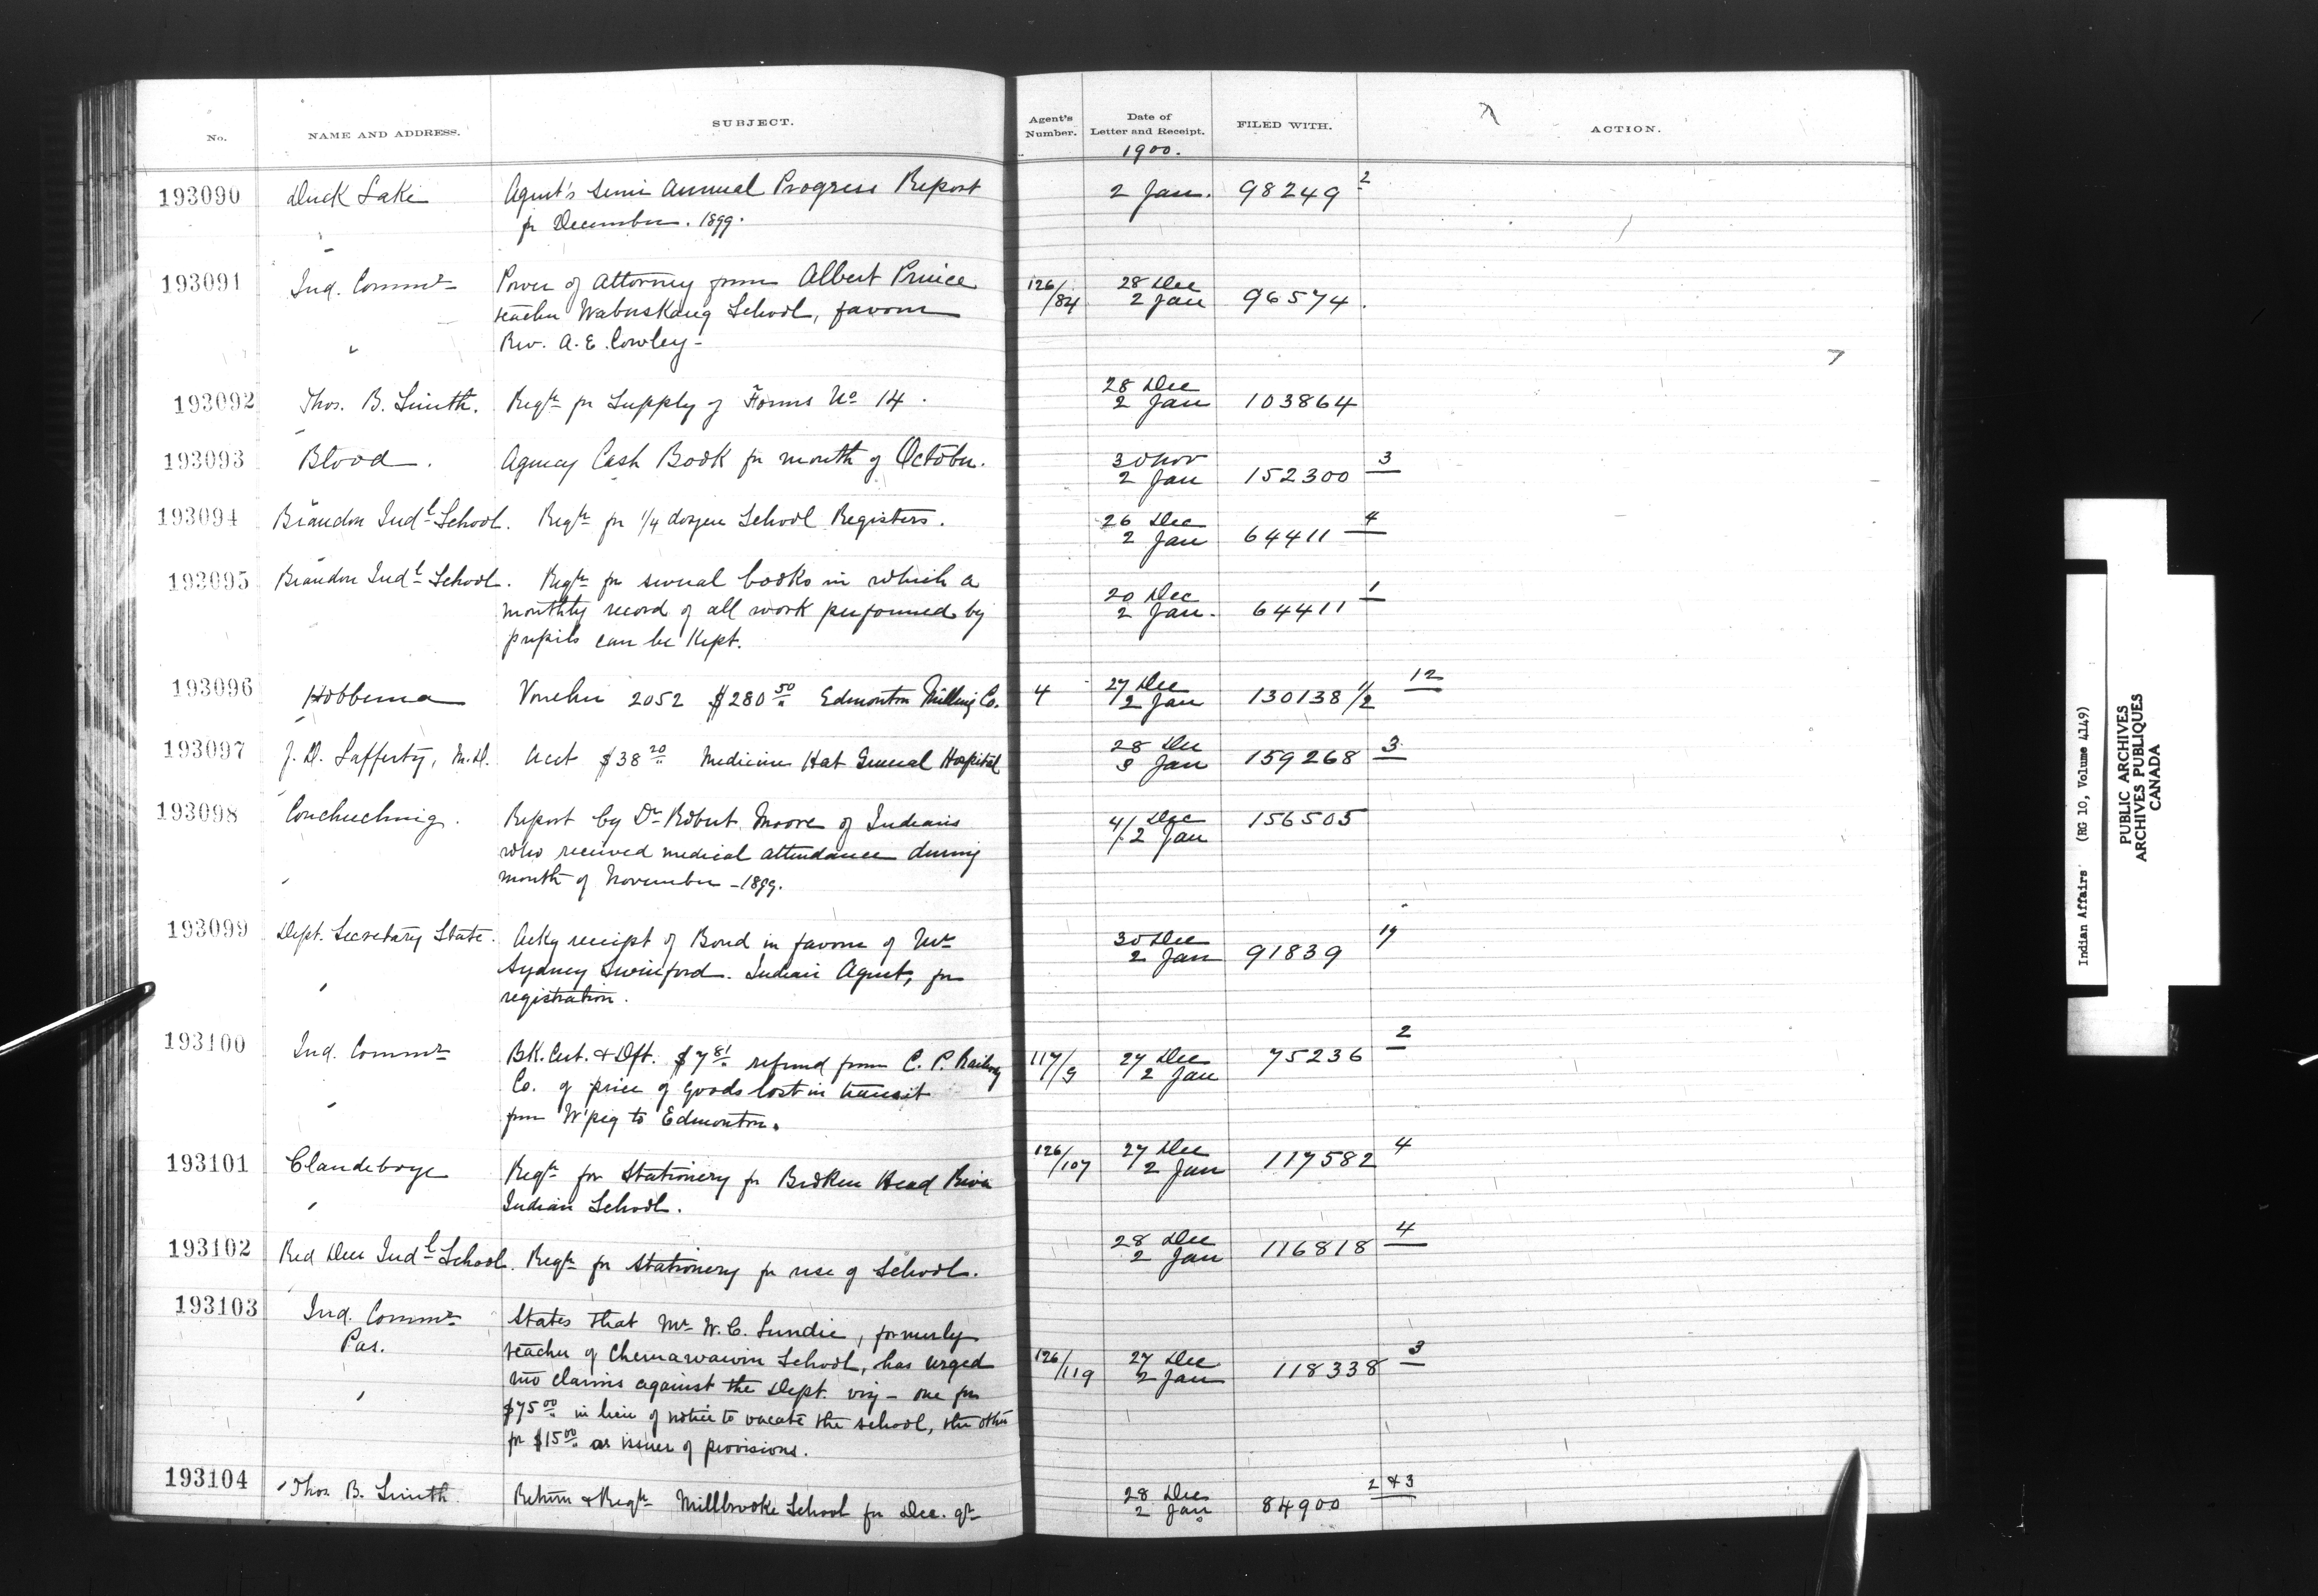 No. NAME AND ADDRESS. SUBJECT. Agent's Number. Date of Letter and Receipt. FILED WITH. ACTION.
1900.
193090 Duck Lake Agent's Semi Annual Progress Report 2 Jan. 98249 2
fr December. 1899.
193091 Ind. Commr Power of Attorney from Albert Prince 126/84 28 Dec
teacher Wabuskang School, favour 2 Jan 96574.
" Rev. A. E. Cowley -
193092 Thos. B. Smith. Reqn fr Supply of Forms No 14. 28 Dec
2 Jan 103864
193093 Blood. Agency Cash Book fr month of October. 30 Nov 3
2 Jan 152300
193094 Brandon Indl School. Reqn fr 1/4 dozen School Registers. 26 Dec 4
2 Jan 64411
193095 Brandon Indl School. Reqn fr several books in which a 20 Dec 1
monthly record of all work performed by 2 Jan. 64411
pupils can be kept.
193096 Hobbema Voucher 2052 $280 50 Edmonton Milling Co. 4 27 Dec 12
2 Jan 130138 1/2
193097 J. D. Lafferty, M.D. Acct $38 20 Medicine Hat General Hospital 28 Dec 3
Jan 159268
193098 Couchiching. Report by Dr Robert Moore of Indians 4 Dec 156505
who received medical attendance during 2 Jan
month of November - 1899.
193099 Dept. Secretary State. Ackg receipt of Bond in favour of Mr 30 Dec 19
Sydney Swinford. Indian Agent, fr 2 Jan 91839
registration.
193100 Ind. Commr Bk. Cert. & Dft. $7 81 refund from C. P. Railway 117/9 27 Dec 75236 2
Co. of price of goods lost in transit 2 Jan
from W'peg to Edmonton.
193101 Clandeboye Reqn for Stationery fr Broken Head River 126/107 27 Dec 4
Indian School. 2 Jan 117582
193102 Red Deer Indl School. Reqn fr Stationery fr use of School. 28 Dec 4
2 Jan 116818
193103 Ind. Commr States that Mr W. C. Lundie, formerly
Pas. teacher of Chemawawin School, has urged 126/119 27 Dec 3
two claims against the Dept. viz - one for 2 Jan 118338
$75 00 in lieu of notice to vacate the school, the other
fr $15 00 as issuer of provisions.
193104 Thos. B. Smith Return & Reqn Millbrooke School fr Dec. qr 28 Dec 2 & 3
2 Jan 84900
Indian Affairs (RG 10, Volume 4149)
PUBLIC ARCHIVES
ARCHIVES PUBLIQUES
CANADA